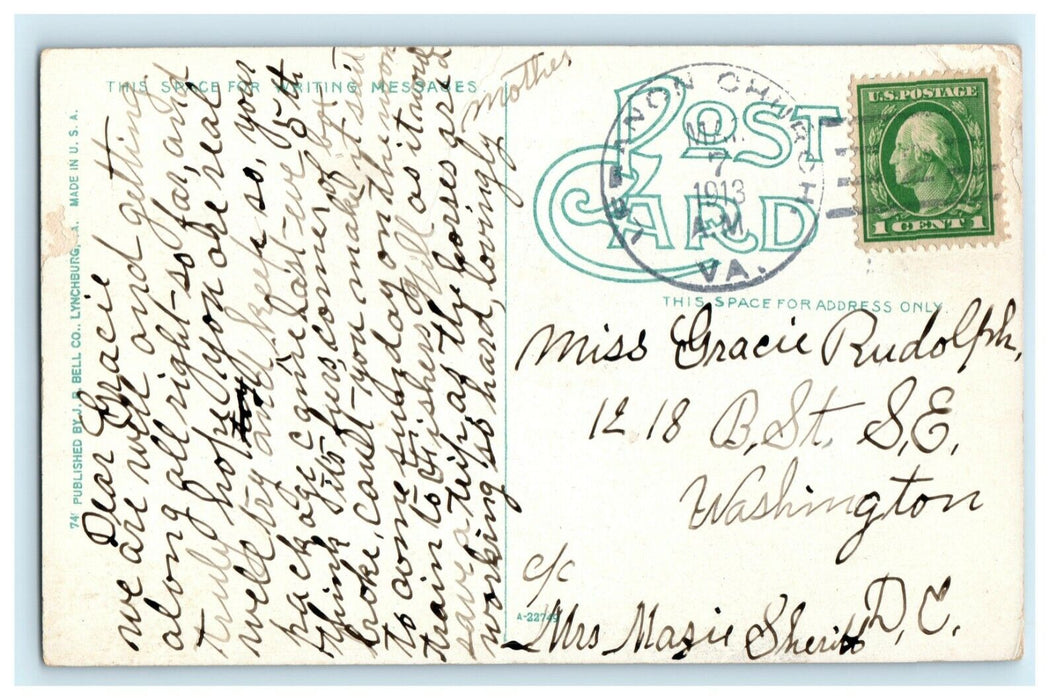 THIS SPACE FOR WRITING MESSAGES
74 PUBLISHED BY J. P. BELL CO., LYNCHBURG, VA. MADE IN U. S. A.
Dear Gracie
we are well and getting
along all right so far, and
truly hope you are real
well try and keep so, your
package came last eve 5th
think two fers corner of
broke, cant you make out
to come tuesday on the noon
train to Fishersville as it would
save a trip as the horses are
working so hard, lovingly
Mother
POST
CARD
VERNON CHURCH
MAR
7
1913
A.M.
VA.
U.S. POSTAGE
1 CENT 1
THIS SPACE FOR ADDRESS ONLY.
Miss Gracie Rudolph,
1218 B. St. S.E.
Washington
D.C.
c/c
A-22749
Mrs Mazie Sheriff